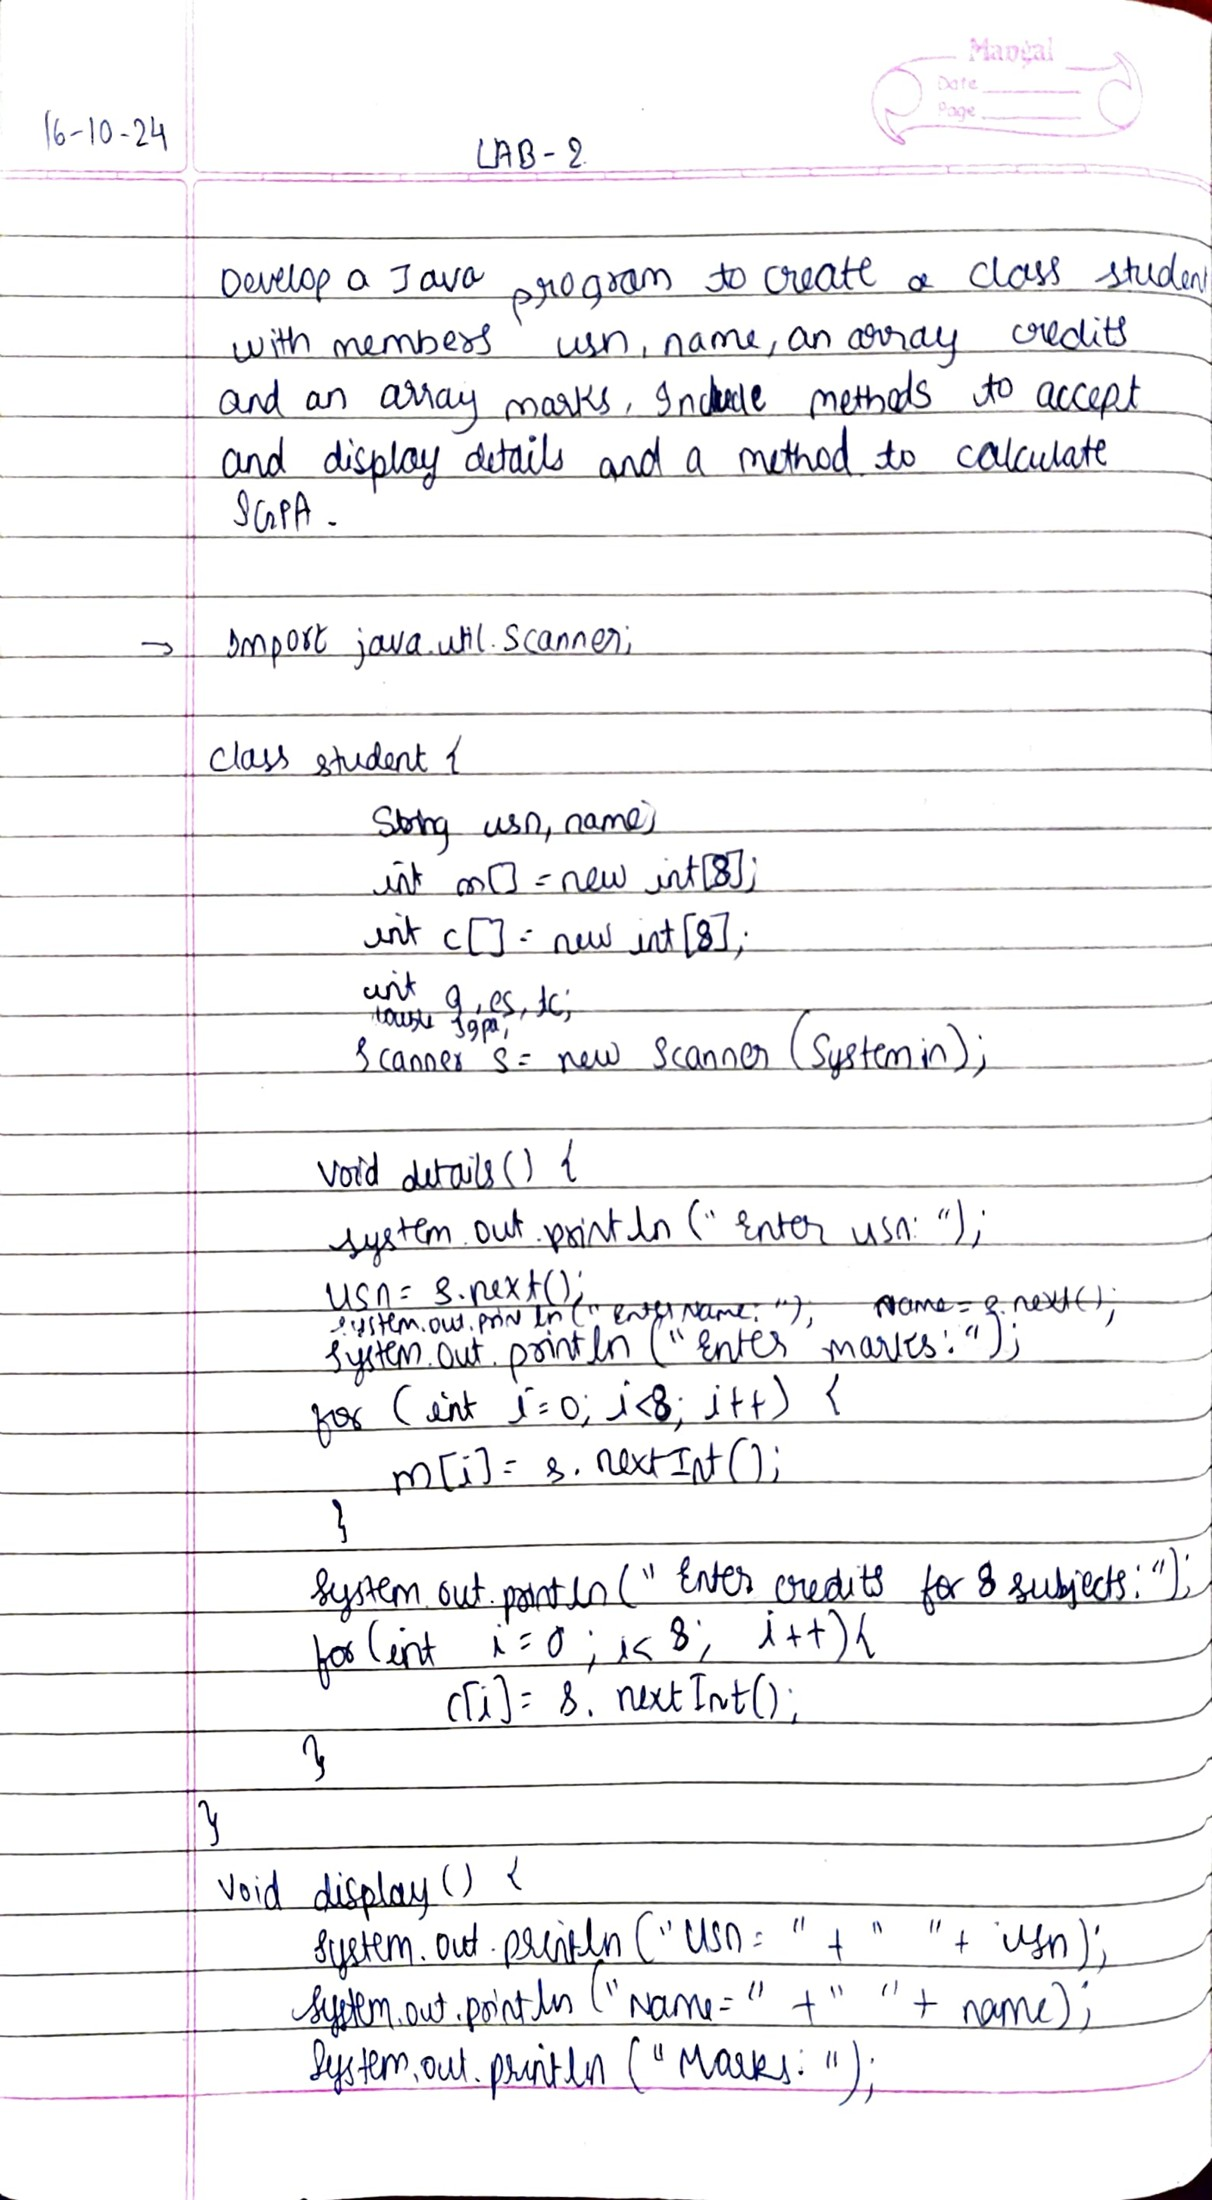 Mangal
Date
Page
16-10-24
LAB-2
Develop a Java program to create a class student
with members usn, name, an array credits
and an array marks. Include methods to accept
and display details and a method to calculate
SGPA.
→ Import java.util.Scanner;
class student {
String usn, name;
int m[] = new int[8];
int c[] = new int[8];
int g, es, tc;
sgpa;
Scanner s= new Scanner (System.in);
void details() {
system.out.println (" Enter usn: ");
usn= s.next();
system.out.println (" Enter Name: "); Name= s.next();
System.out.println ("Enter marks: ");
for (int i=0; i<8; i++) {
m[i]= s.nextInt();
}
System.out.println (" Enter credits for 8 subjects: ");
for (int i=0; i<8; i++){
c[i]= s.nextInt();
}
}
void display() {
System.out.println ("Usn= " + " " + usn);
System.out.println ("Name=" + " " + name);
System.out.println ("Marks: ");